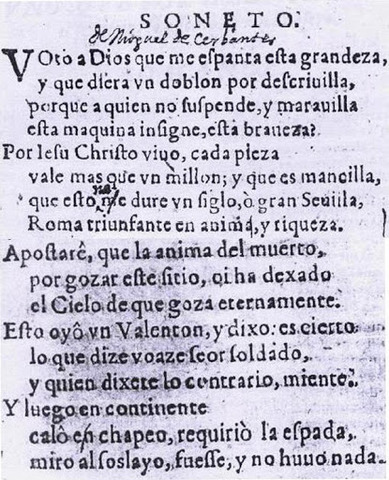 SONETO.
de Miguel de Cerbantes
VOto a Dios que me eſpanta eſta grandeza,
y que diera vn doblon por deſcriuilla,
porque a quien no ſuſpende, y marauilla
eſta maquina inſigne, eſta braueza?
Por Ieſu Chriſto viuo, cada pieza
vale mas que vn millon; y que es mancilla,
que eſto no dure vn ſiglo, ò gran Seuilla,
Roma triunfante en anima, y riqueza.
Apoſtarè, que la anima del muerto,
por gozar eſte ſitio, oi ha dexado
el Cielo de que goza eternamente.
Eſto oyò vn Valenton, y dixo: es cierto
lo que dize voaze ſeor ſoldado,
y quien dixere lo contrario, miente.
Y luego en continente
calò el chapeo, requiriò la eſpada,
miro al ſoslayo, fueſſe, y no huuo nada.